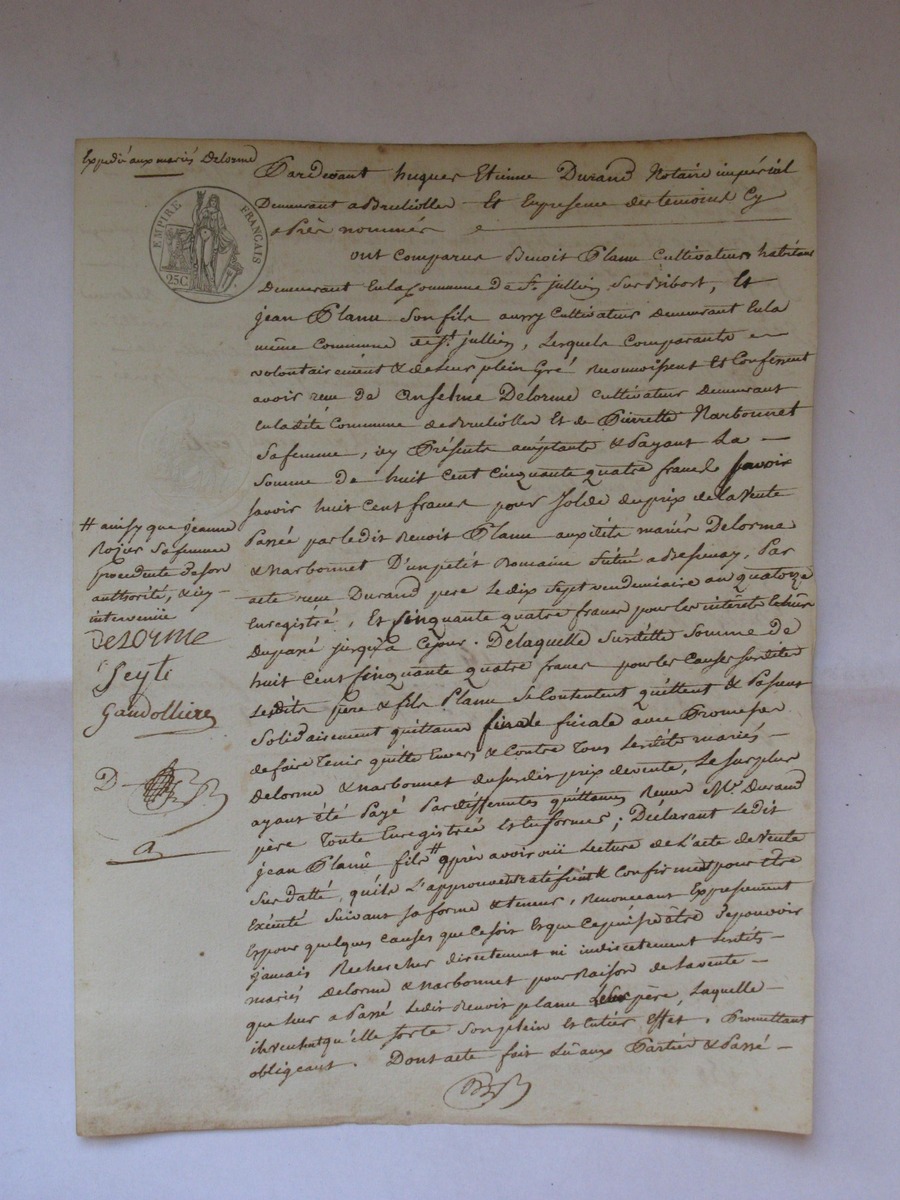 Expedié aux mariés Delorme
Pardevant hugues Etienne Durand Notaire impérial
Demeurant a Brulliolles Et En presence des temoins Cy
après nommés
EMPIRE FRANÇAIS
25C
ont comparus Benoit Planu Cultivateurs
Demeurant En la Commune de St. jullien Sur Bibost, Et
jean Planu Son fils aussy Cultivateur Demeurant En la
même Commune de St. jullien, Lesquels Comparants
volontairement & de leur plein Gré reconnoissent Et Confessent
avoir reçu de Anselme Delorme Cultivateur Demeurant
En la dite Commune de Brulliolles Et de Pierrette Narbonnet
Sa femme, icy Présents acceptants & Payant La
Somme de huit Cent Cinquante quatre francs Savoir
Savoir huit Cent francs pour Solde du prix de la Vente
Passée par ledit Benoit Planu auxdits mariés Delorme
& Narbonnet D'un petit Domaine Situé a Bessenay, Par
acte reçu Durand pere Le dix Sept vendemiaire an quatorze
Enregistré, Et Cinquante quatre francs pour les intérêts
du passé jusqu'à Ce jour. De laquelle Susditte Somme de
huit Cent Cinquante quatre francs pour les Causes Susdites
Lesdits père & fils Planu Se Contentent quittent & Passent
Solidairement quittance finale finale avec Promesse
de faire Tenir quitte Envers & Contre Tous Lesdits mariés
Delorme & Narbonnet du Susdit prix de vente, Le Surplus
ayant été Payé Par differentes quittances Reçues Me. Durand
père Toute Enregistrée Et En formes; Déclarant Ledit
jean Planu fils # après avoir oüi Lecture de L'acte de Vente
Sus datté, qu'ils L'approuvent ratifient & Confirment pour être
Exécuté Suivant Sa forme & teneur, Renonceant Expressement
Et pour quelques Causes que Ce soit Et que Ce puisse être De pouvoir
jamais Rechercher directement ni indirectement Lesdits
mariés Delorme & Narbonnet pour Raison de La vente
que Leur a Passé Ledit Benoit planu Leur père, Laquelle
ils veulent qu'elle Sorte Son plein Et Entier Effet. Promettant
obligeant. Dont acte fait Lû aux Parties & Passé
# ainsy que jeanne
Rojer Sa femme
procedente de son
authorité, & icy
intervenüe
DeLORME
Seyti
Gaudollieres
D